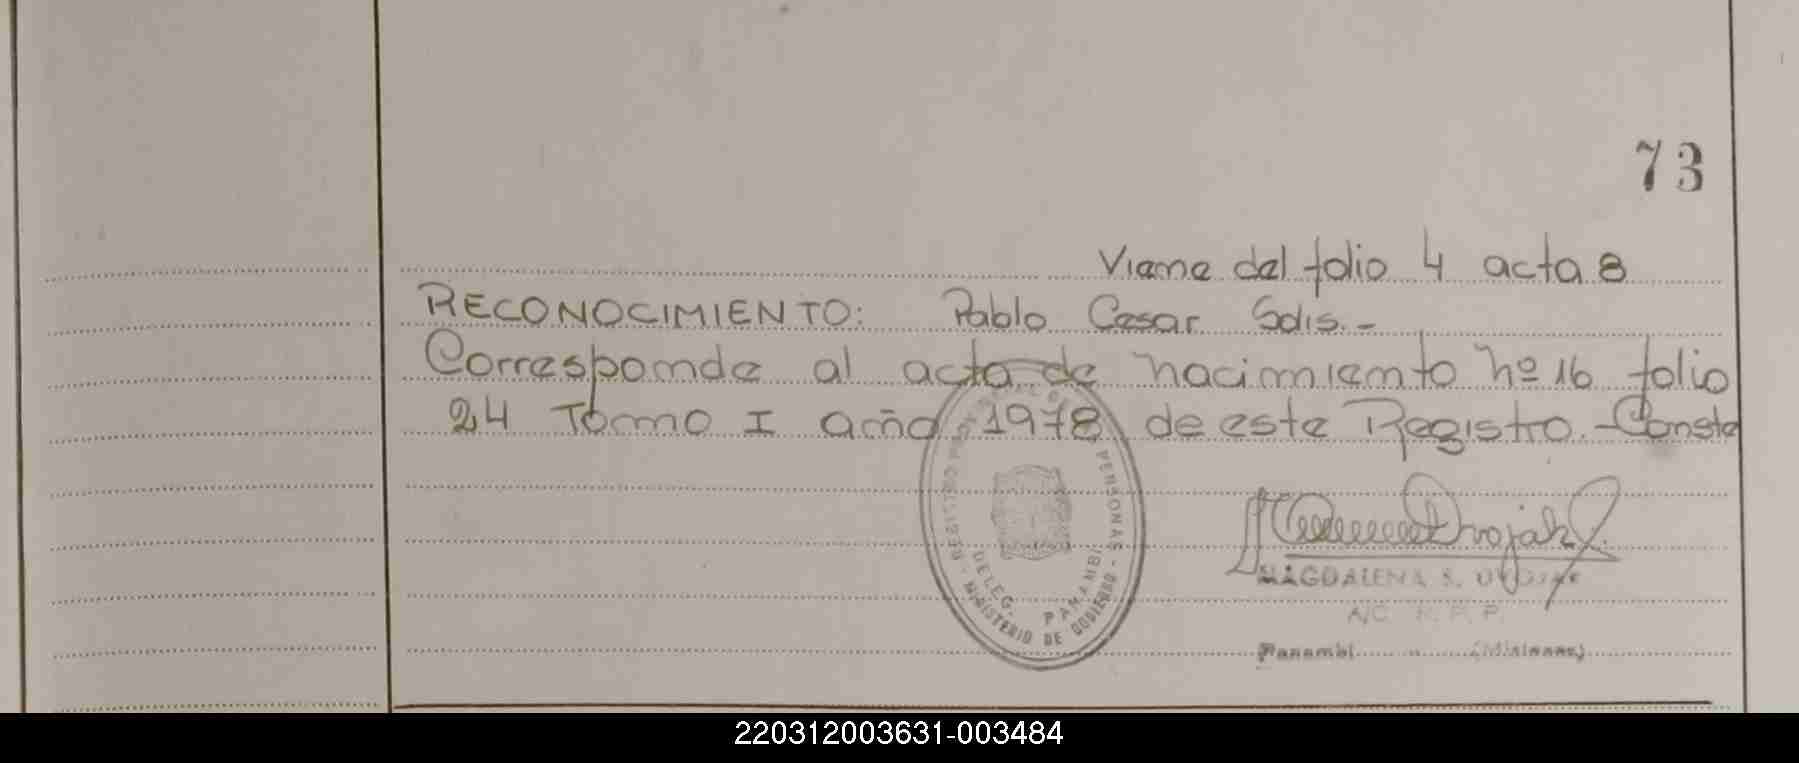 73
Viene del folio 4 acta 8
RECONOCIMIENTO: Pablo Cesar Solis.-
Corresponde al acta de nacimiento nº 16 folio
24 Tomo I año 1978 de este Registro.-Conste
PERSONAS - MINISTERIO DE GOBIERNO -
DELEG. PANAMBI
MAGDALENA S.
A/C R. P. P.
Panambi (Misiones)
220312003631-003484